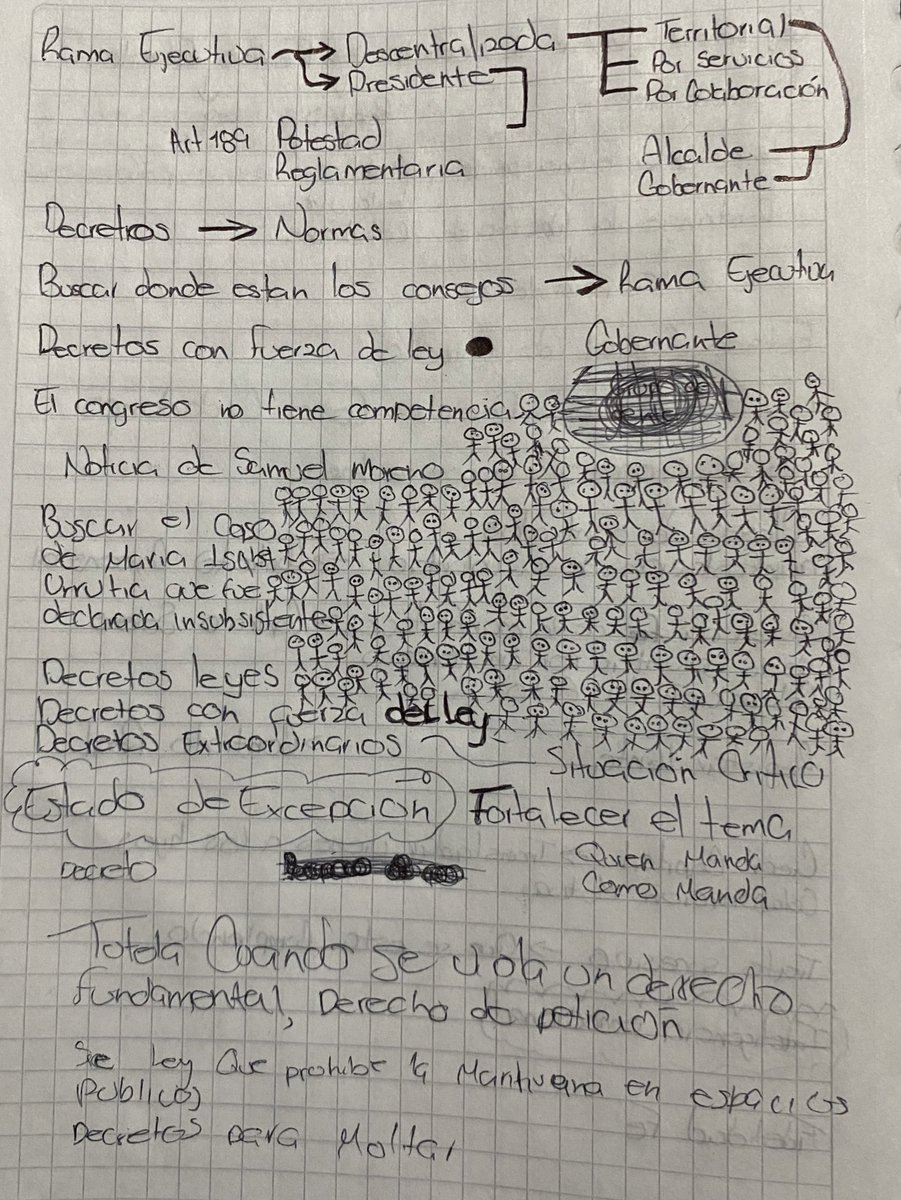 Rama Ejecutiva → Descentralizada Territorial
Presidente Por Servicios
Por Colaboración
Art 189 Potestad Alcalde
Reglamentaria Gobernante
Decretros → Normas
Buscar donde estan los consejos → Rama Ejecutiva
Decretos con fuerza de ley Gobernante
El congreso no tiene competencia
Noticia de Samuel Moreno
Buscar el Caso
de Maria
Urrutia que fue
declarada insubsistente
Decretos leyes
Decretos con fuerza de Ley
Decretos Extraordinarios
Situación Critico
Estado de Excepcion Fortalecer el tema
Decreto Quien Manda
Como Manda
Totela Cuando se viola un derecho
fundamental, Derecho de peticion
Se Ley Que prohibe la en espacios
Publicos
Decretos para Moltar